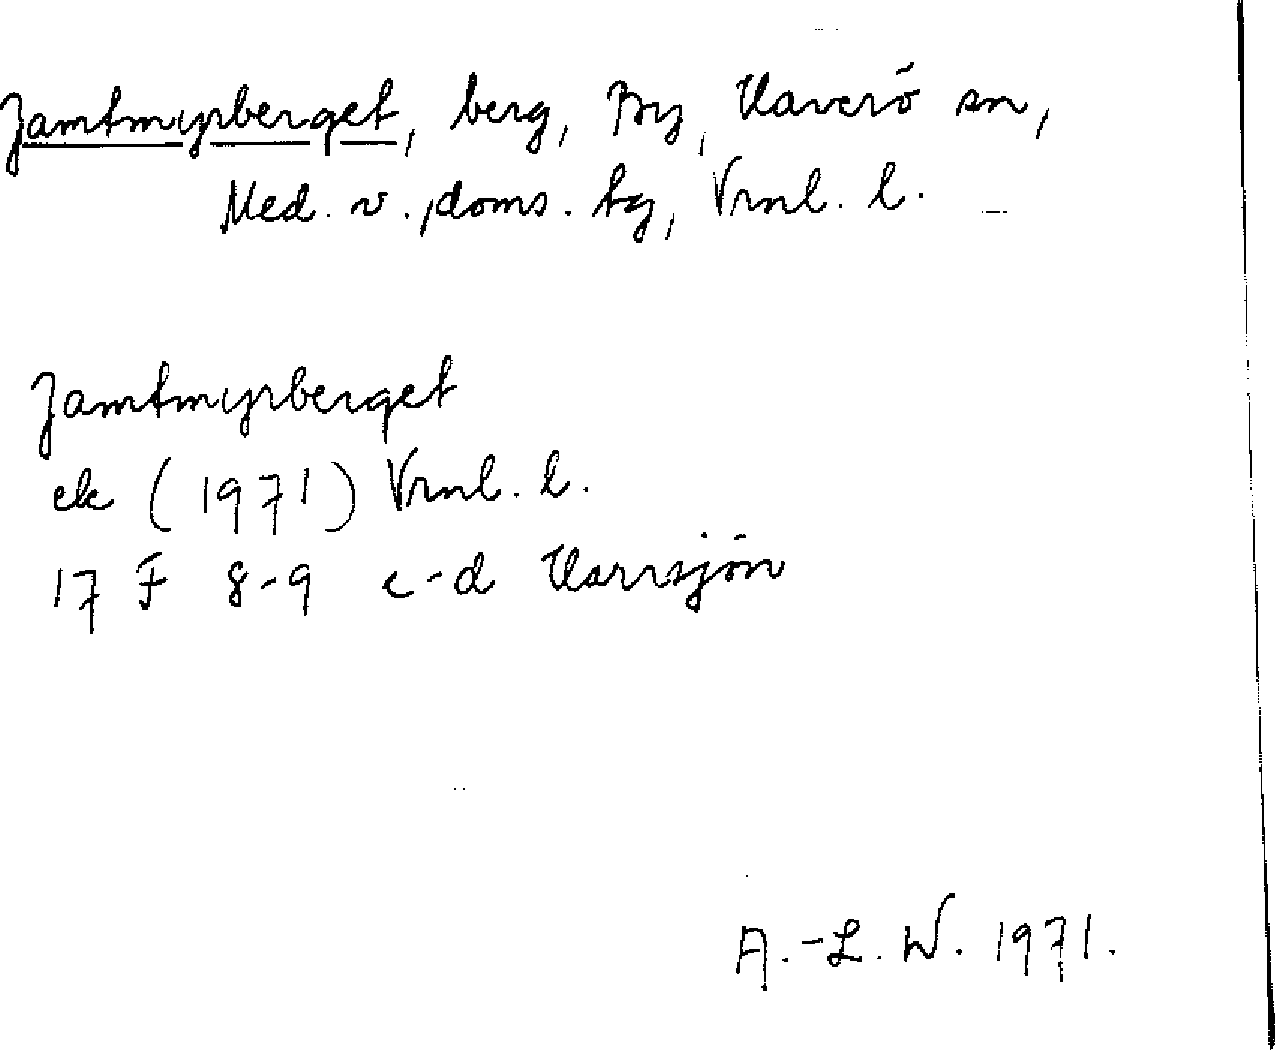 Jämtmyrberget, berg, By, Haverö sn,
Med. v., doms. hg, Vrnl. l.
Jämtmyrberget
ek (1971) Vrnl. l.
17 F 8-9 c-d Harrsjön
A.-L. W. 1971.